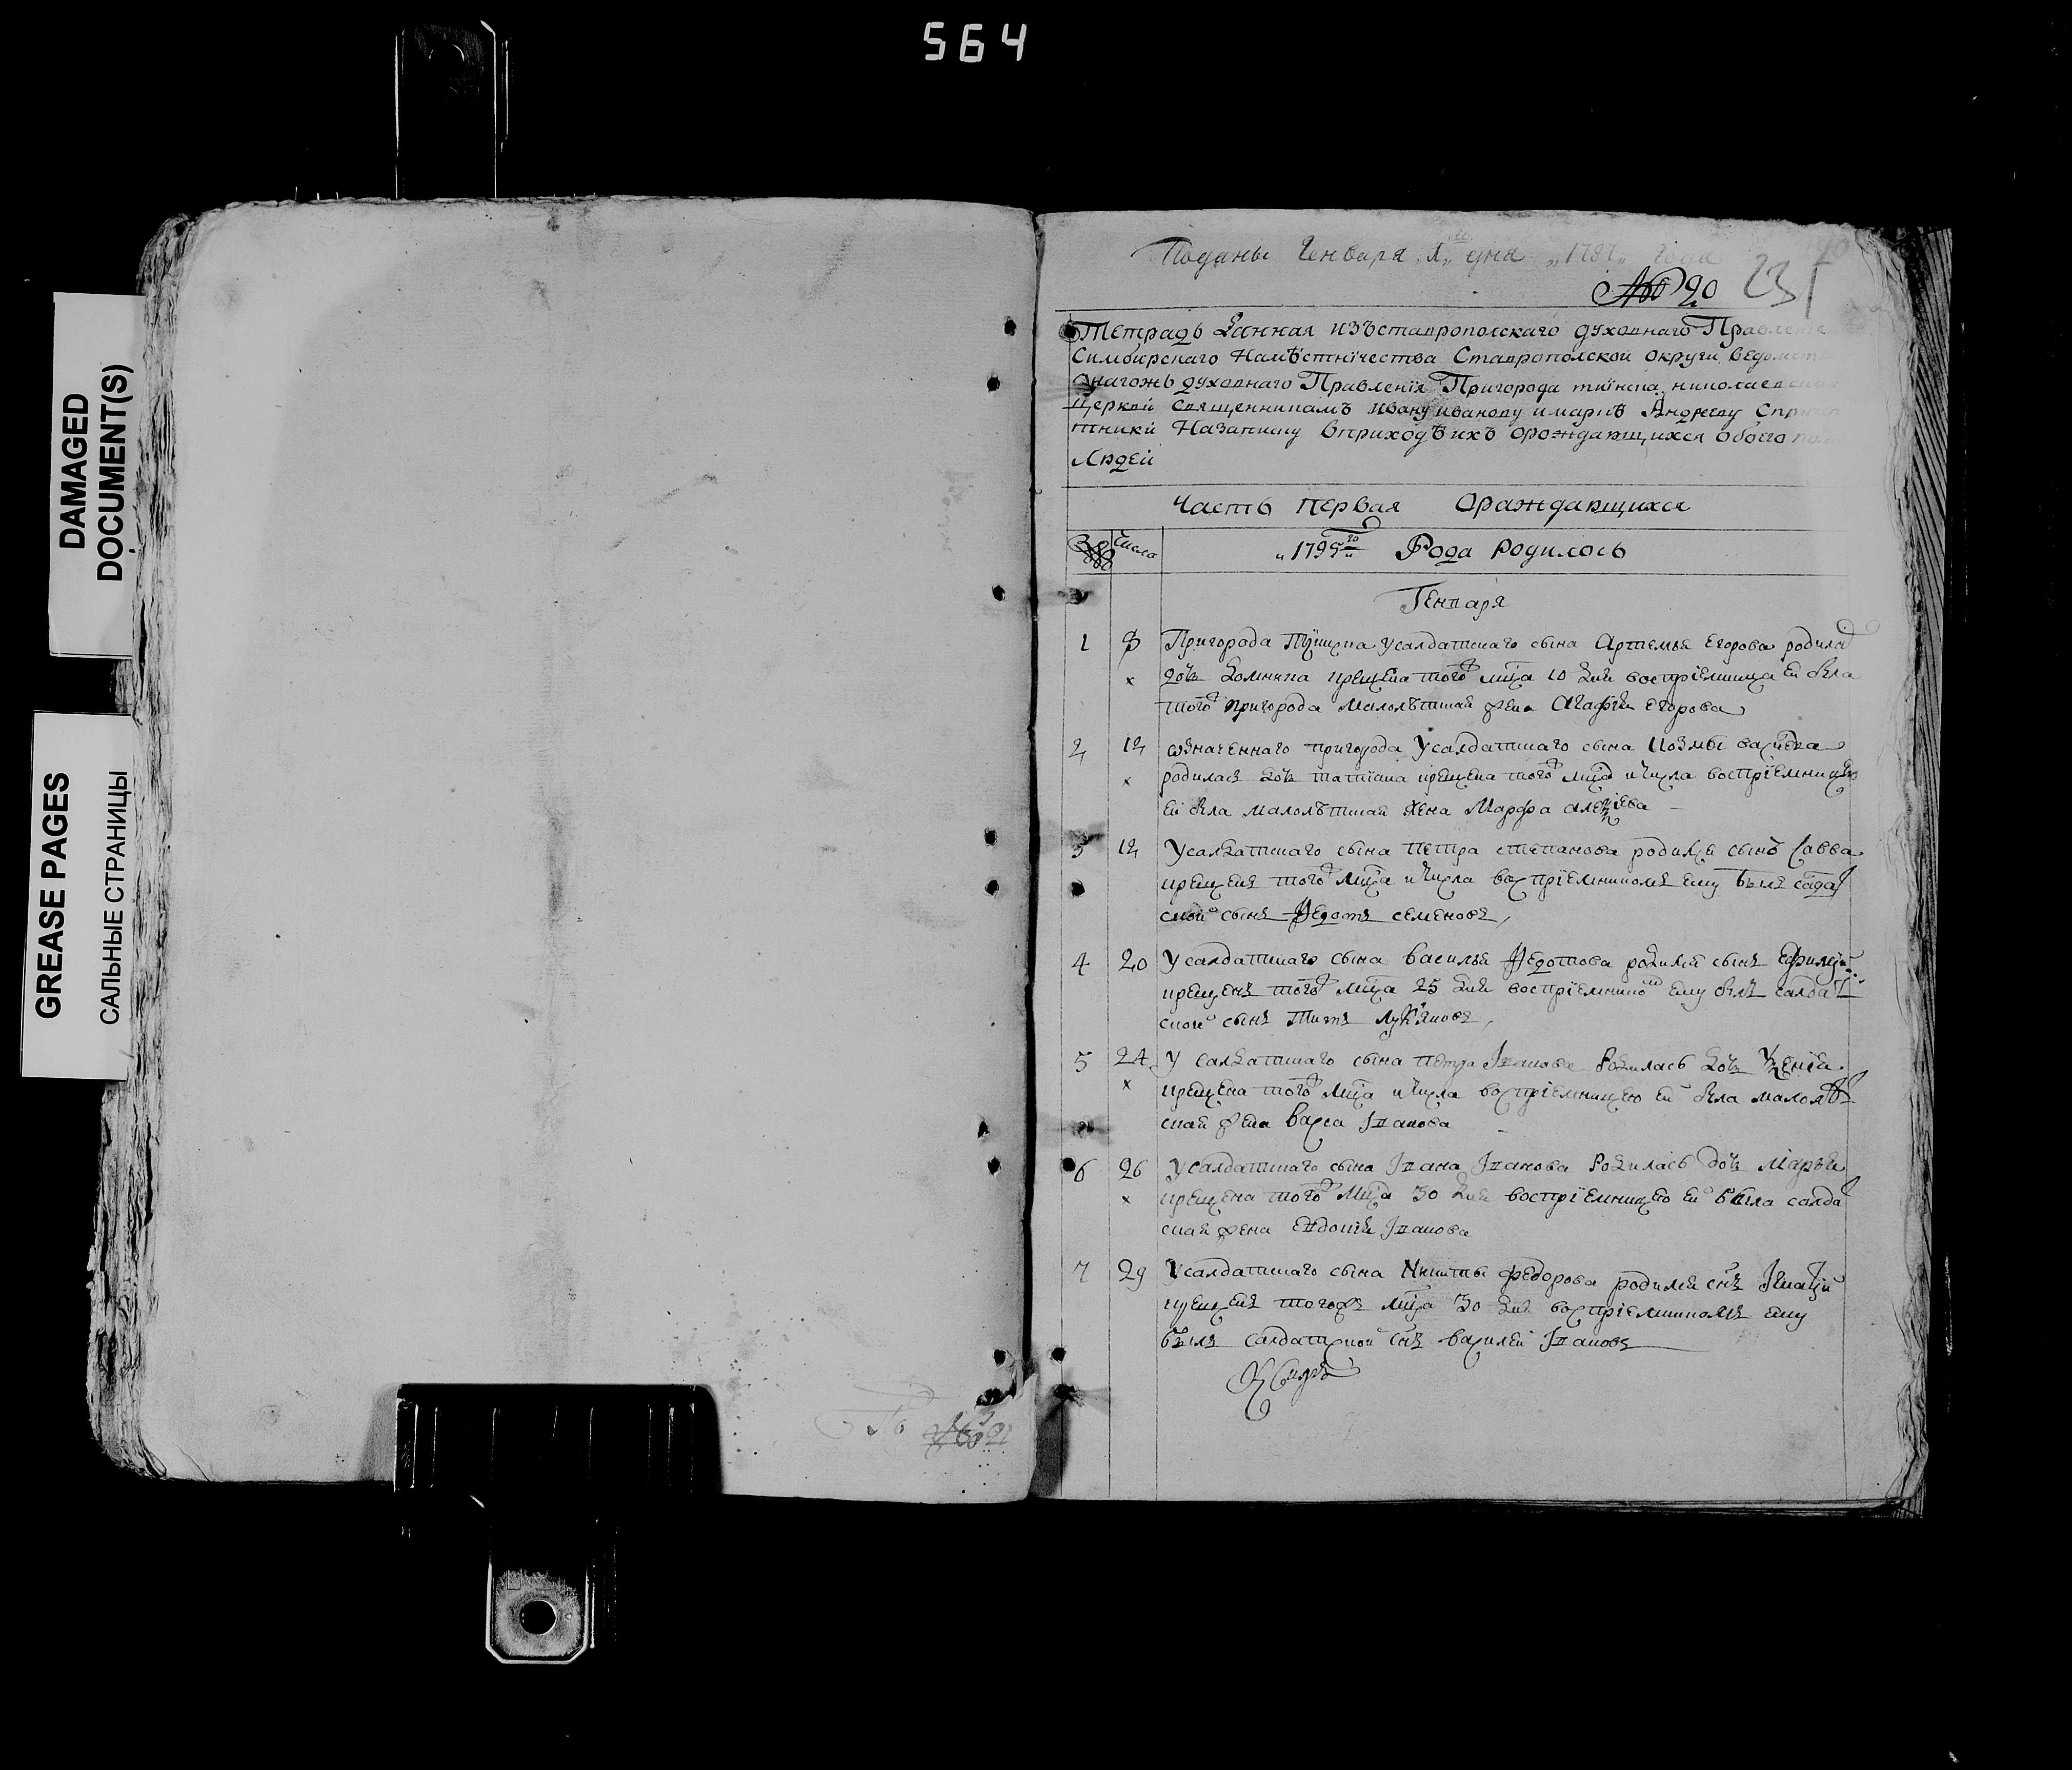 564
DAMAGED
DOCUMENT(S)
GREASE PAGES
САЛЬНЫЕ СТРАНИЦЫ
Поданы Генваря дня года
№ 20 231
Тетрадь Данная изъставропольскаго духовнаго Правления
Симбирскаго Намѣстничества Ставропольской округи ведомст
онагожъ духовнаго Правленія Пригорода тиинска николаевской
церкви священникамъ ивану иванову имаркѣ Андрееву
Назаписку вприходѣ ихъ ораждающихся обоего пола
Людей
Часть первая Ораждающихся
Число
1795го Года родилось
Генваря
1 8 Пригорода Тиинска Усалдатскаго сына Артемья Егорова родила
дочь Домника крещена того мца 10 дня воспріемница ей была
того пригорода Малолѣтная жена Агафія Егорова
2 12 означеннаго пригорода Усалдатскаго сына Козмы
родилася дочь татіана крещена того мца ичисла воспріемницею
ей была малолѣтная жена Марфа алексіева
3 12 Усалдатскаго сына петра степанова родился сынъ Савва
крещенъ того мца ичисла воспріемникомъ ему былъ салда
ской сынъ Федотъ семеновъ,
4 20 Усалдатскаго сына василья Федотова родился сынъ
крещенъ того мца 25 дня воспріемнико ему былъ салдат
ской сынъ Титъ Лукяновъ,
5 24 У салдатскаго сына петра Іванова Родилась дочь Ксенія
крещена того мца ичисла воспріемницею ей была малолѣт
ская жена Васса Іванова
6 26 Усалдатскаго сына Івана Іванова Родилась дочь Марья
крещена того мца 30 дня воспріемницею ей была салда
ская жена Евдокія Іванова
7 29 Усалдатскаго сына Никиты федорова родился снъ Ігнатій
крещенъ тогожъ мца 30 дня воспріемникомъ ему
былъ салдатской снъ василей Івановъ